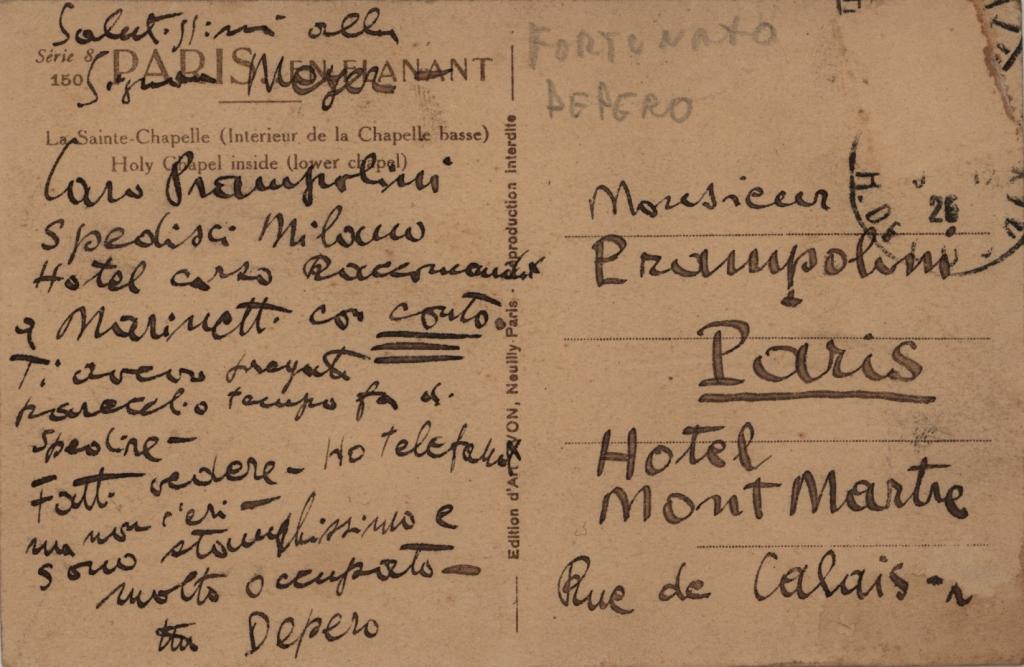 Salutissimi alla
Signora Moyer
Série 8
150
PARIS EN FLANANT
La Sainte-Chapelle (Intérieur de la Chapelle basse)
Holy Chapel inside (lower chapel)
Caro Prampolini
Spedisci Milano
Hotel corso Raccomandata
a Marinetti con conto.
Ti avevo pregato
parecchio tempo fa di
spedire -
Fatti vedere - Ho telefonato
ma non c'eri -
sono stanchissimo e
molto occupato -
Depero
Edition d'Art YVON, Neuilly-Paris - Reproduction interdite
FORTUNATO
DEPERO
H. DE
26
Monsieur
Prampolini
Paris
Hotel
Mont Martre
Rue de Calais -